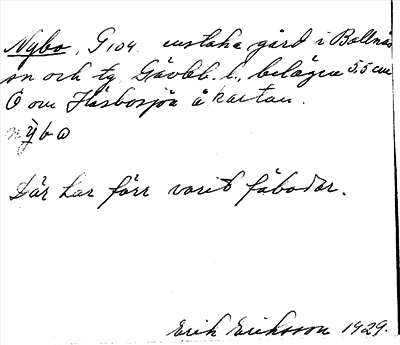 Nybo, G104. enstaka gård i Bollnäs
sn och tg, Gävleb. l., belägen 5,5 cm
Ö om Häsbosjön å kartan.
nỳbo
Där har förr varit fäbodar.
Erik Eriksson 1929.